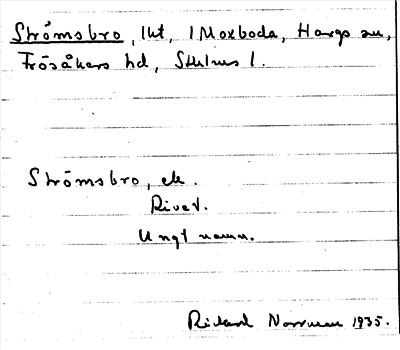 Strömsbro, lht, 1 Moxboda, Hargs sn,
Frösåkers hd, Sthlms l.
Strömsbro, ele.
Rivet.
Ungt namn.
Rickard Norrman 1935.